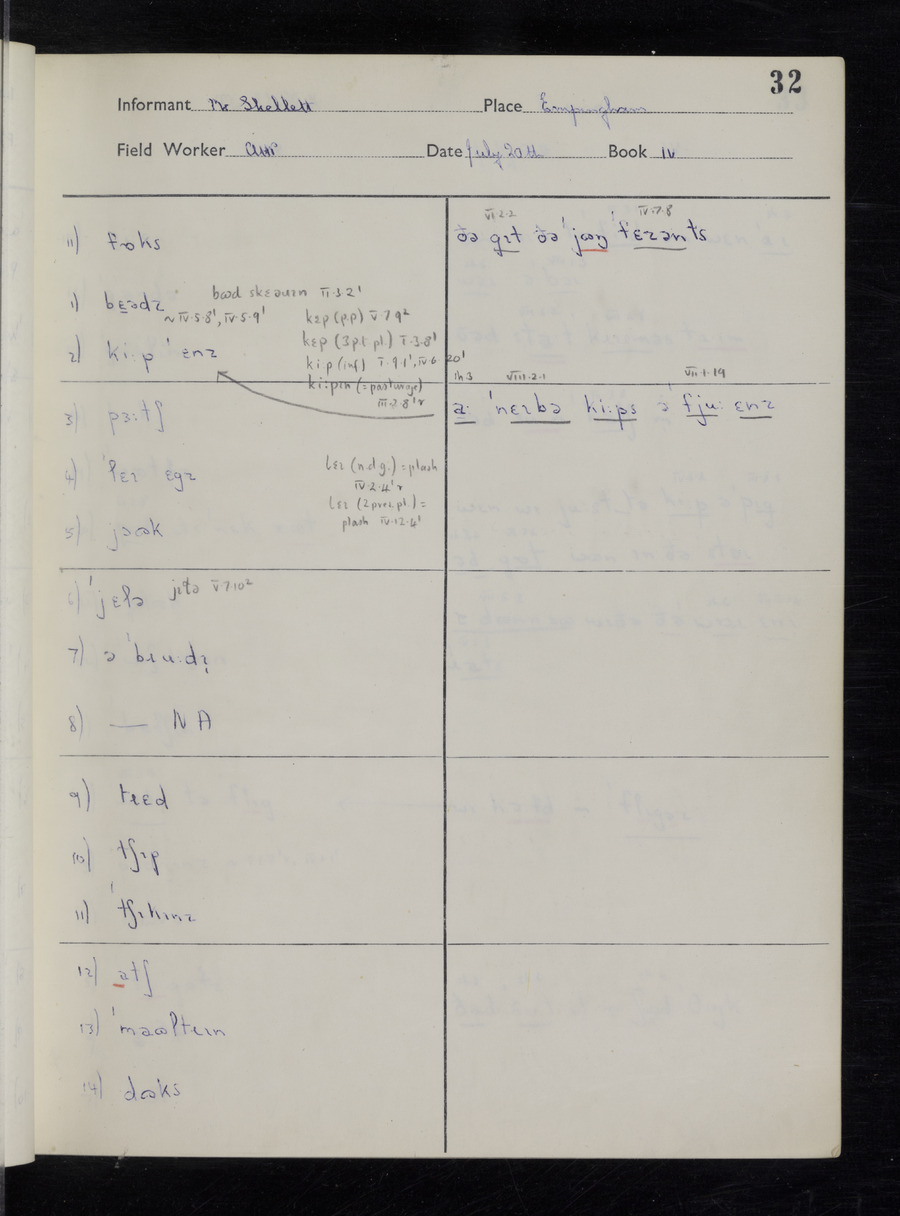 32
Informant Mr Skellett Place Empingham
Field Worker Date July 20th Book IV
11) fɒks
VI.2.2 IV.7.8
ðə gɪt ðə ˈjɷŋ ˈtɛɹənts
1) bɛədz
bɷd skɛəɹɪn II.3.2'
~ IV.5.8', IV.5.9'
kɛp (pp) V.7.9²
2) ki:p ˈɛnz
kɛp (3pt.pl.) I.3.8'
ki:p (inf) I.9.1', IV.6.20'
ki:pɪn (=pasturage)
III.3.8'r
VIII.2.1 VII.1.19
a: ˈnɛɪbə ki:ps ə fju: ɛnz
3) pɜ:tʃ
4) ˈlɛɪ ɛgz
lɛɪ (n.d.g.) = plash
IV.2.4'r
lɛɪ (2prez.pl.) =
plash IV.12.4'
5) jɔɷk
6) ˈjɛlə
7) ə ˈbɹu:dɪ
8) — NA
9) tɹɛd
10) tʃɪp
11) ˈtʃɪkɪnz
12) atʃ
13) ˈmaɷltɪɪn
14) dɷks